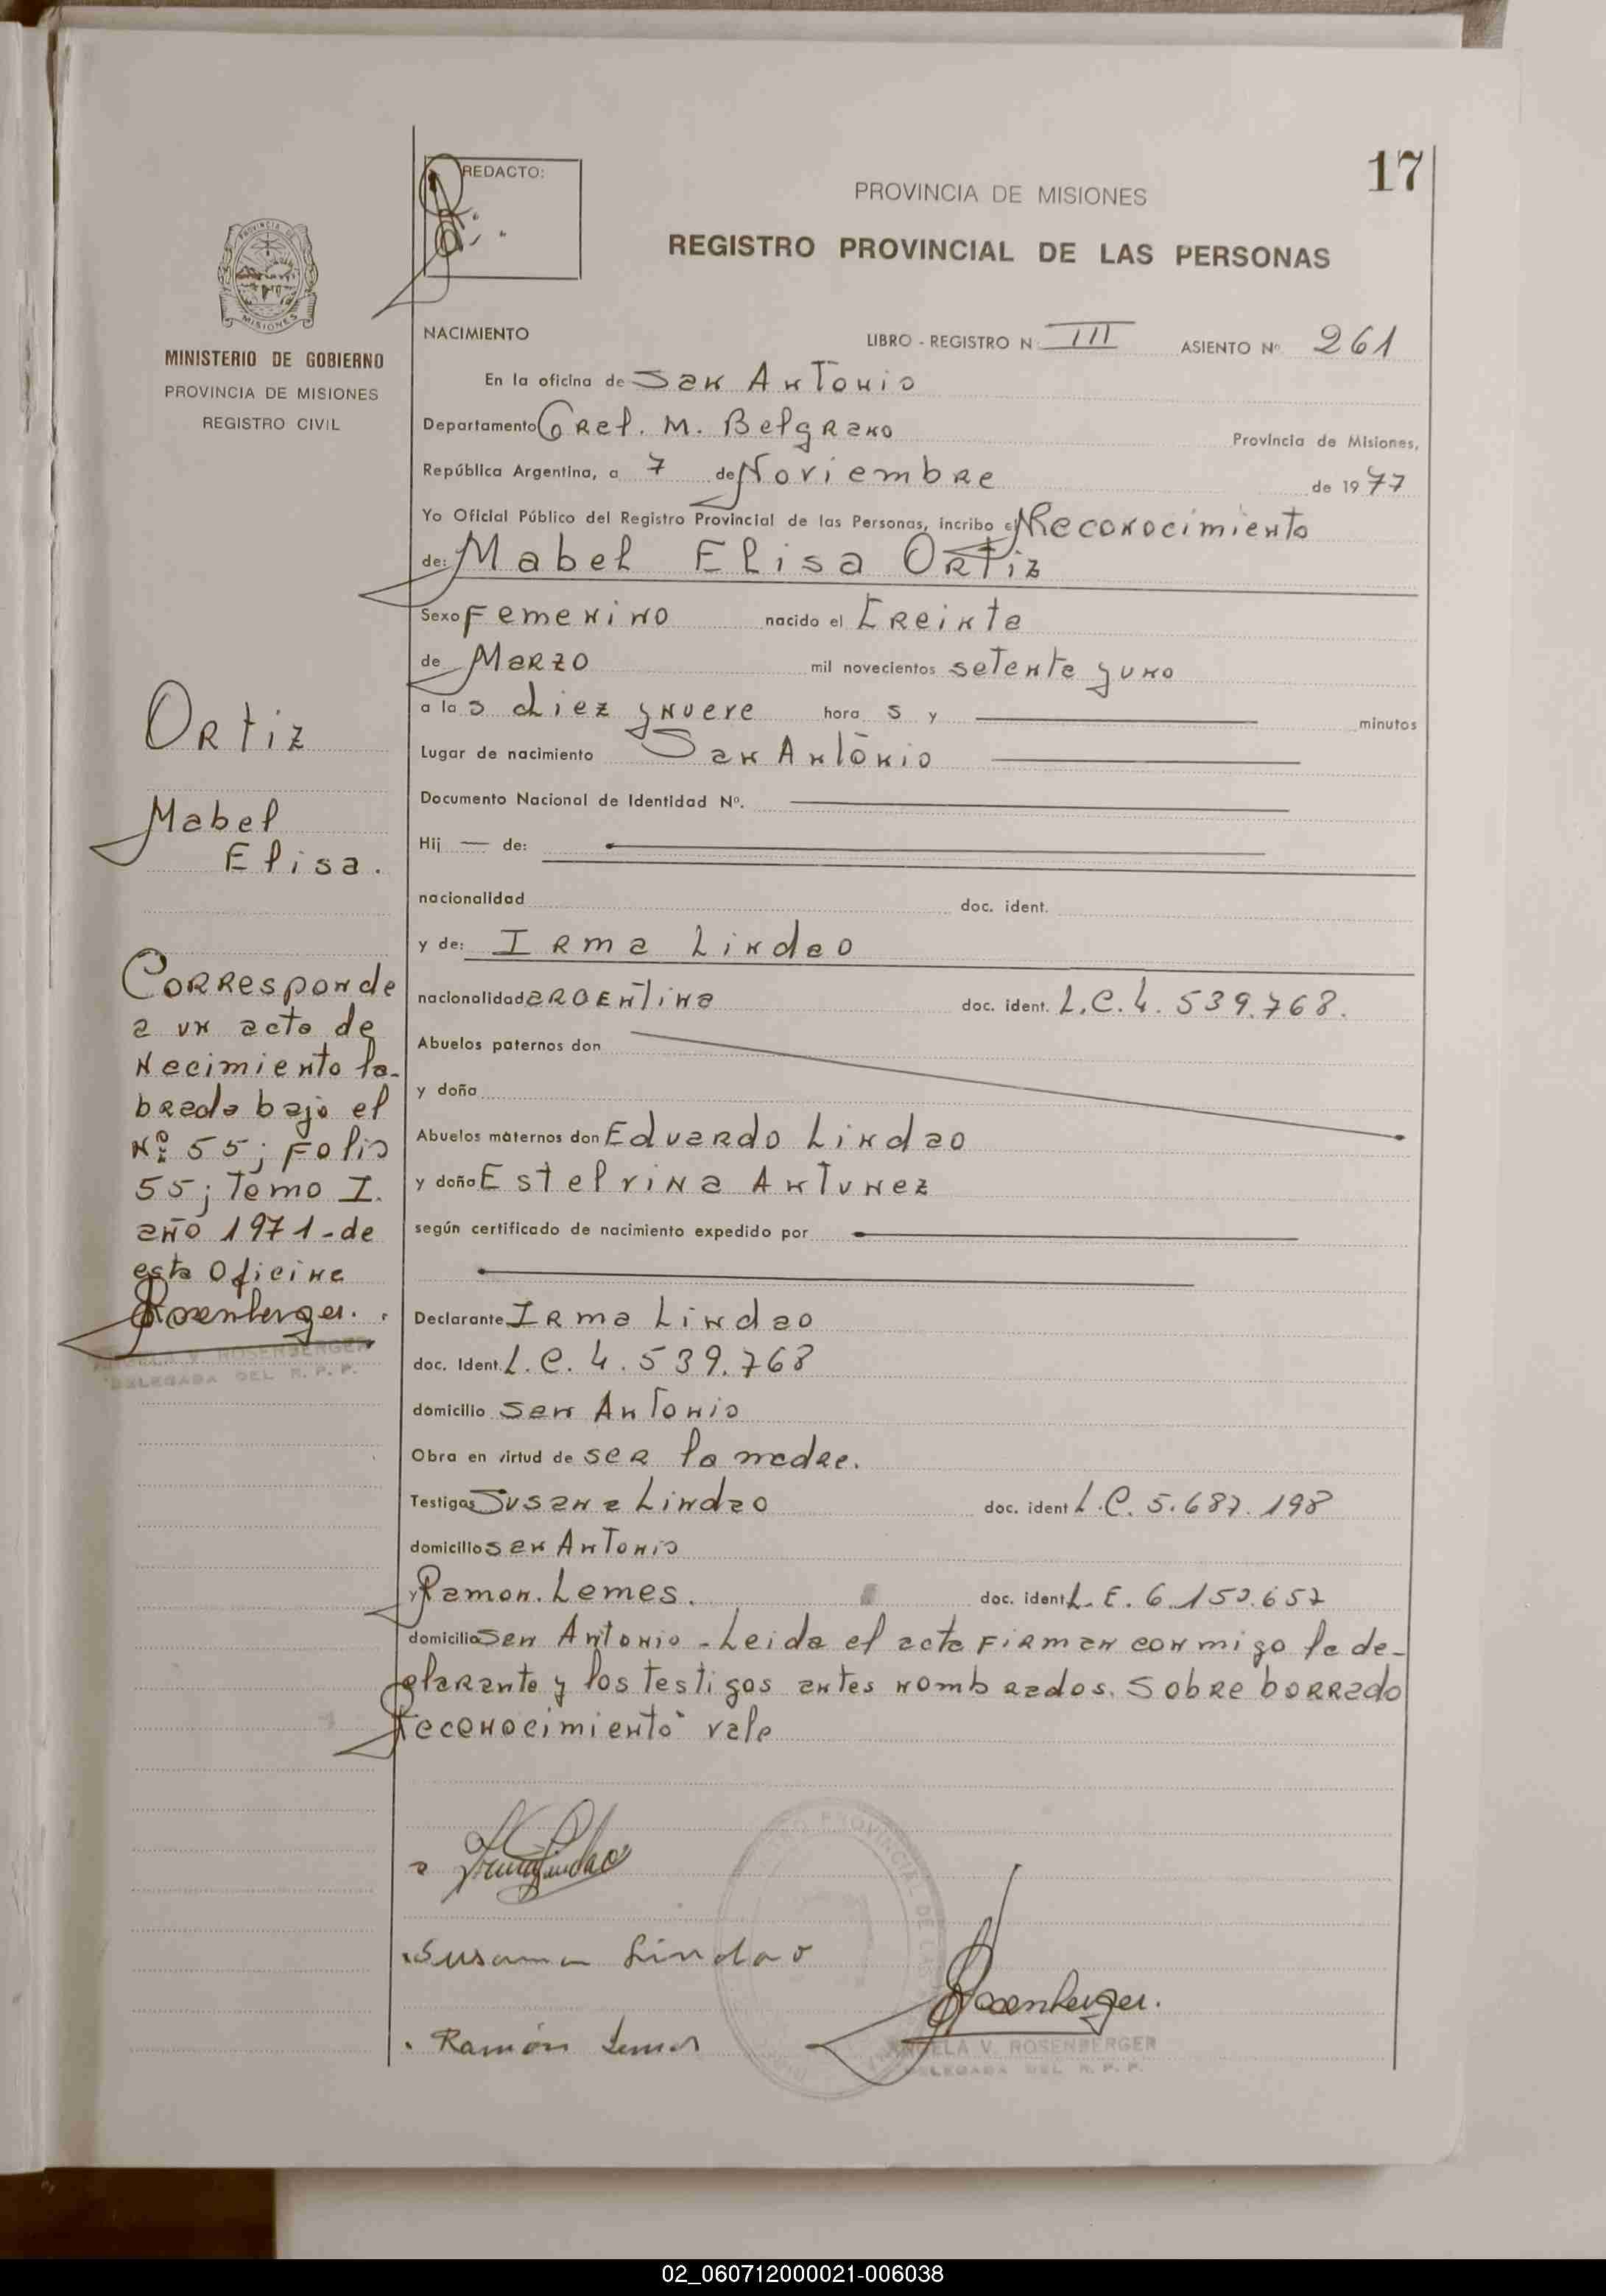 17
REDACTO:
PROVINCIA DE MISIONES
REGISTRO PROVINCIAL DE LAS PERSONAS
PROVINCIA DE
MISIONES
MINISTERIO DE GOBIERNO
PROVINCIA DE MISIONES
REGISTRO CIVIL
NACIMIENTO LIBRO - REGISTRO N III ASIENTO Nº 261
En la oficina de San Antonio
Departamento Gral. M. Belgrano Provincia de Misiones,
República Argentina, a 7 de Noviembre de 1977
Yo Oficial Público del Registro Provincial de las Personas, incribo el Reconocimiento
de: Mabel Elisa Ortiz
Sexo Femenino nacido el treinta
de Marzo mil novecientos setenta y uno
a las diez y nueve hora s y minutos
Lugar de nacimiento San Antonio
Documento Nacional de Identidad Nº.
Hij — de:
nacionalidad doc. ident.
y de: Irma Lindao
nacionalidad argentina doc. ident. L.C. 4.539.768.
Abuelos paternos don
y doña
Abuelos maternos don Eduardo Lindao
y doña Estelvina Antunez
según certificado de nacimiento expedido por
Declarante Irma Lindao
doc. Ident. L.C. 4.539.768
domicilio San Antonio
Obra en virtud de ser la madre.
Testigos Susana Lindao doc. ident L.C. 5.687.198
domicilio San Antonio
y Ramon Lemes. doc. ident L.E. 6.153.657
domicilio San Antonio - Leida el acta firman conmigo la de-
clarante y los testigos antes nombrados. Sobre borrado
"reconocimiento" vale
Ortiz
Mabel
Elisa.
Corresponde
a un acta de
Nacimiento la-
brada bajo el
Nº 55; Folio
55; Tomo I.
año 1971 - de
esta Oficina
Rosenberger.
ANGELA V. ROSENBERGER
DELEGADA DEL R. P. P.
Irma Lindao
Susana Lindao
Ramón Lemes
Rosenberger.
ANGELA V. ROSENBERGER
DELEGADA DEL R. P. P.
02_060712000021-006038